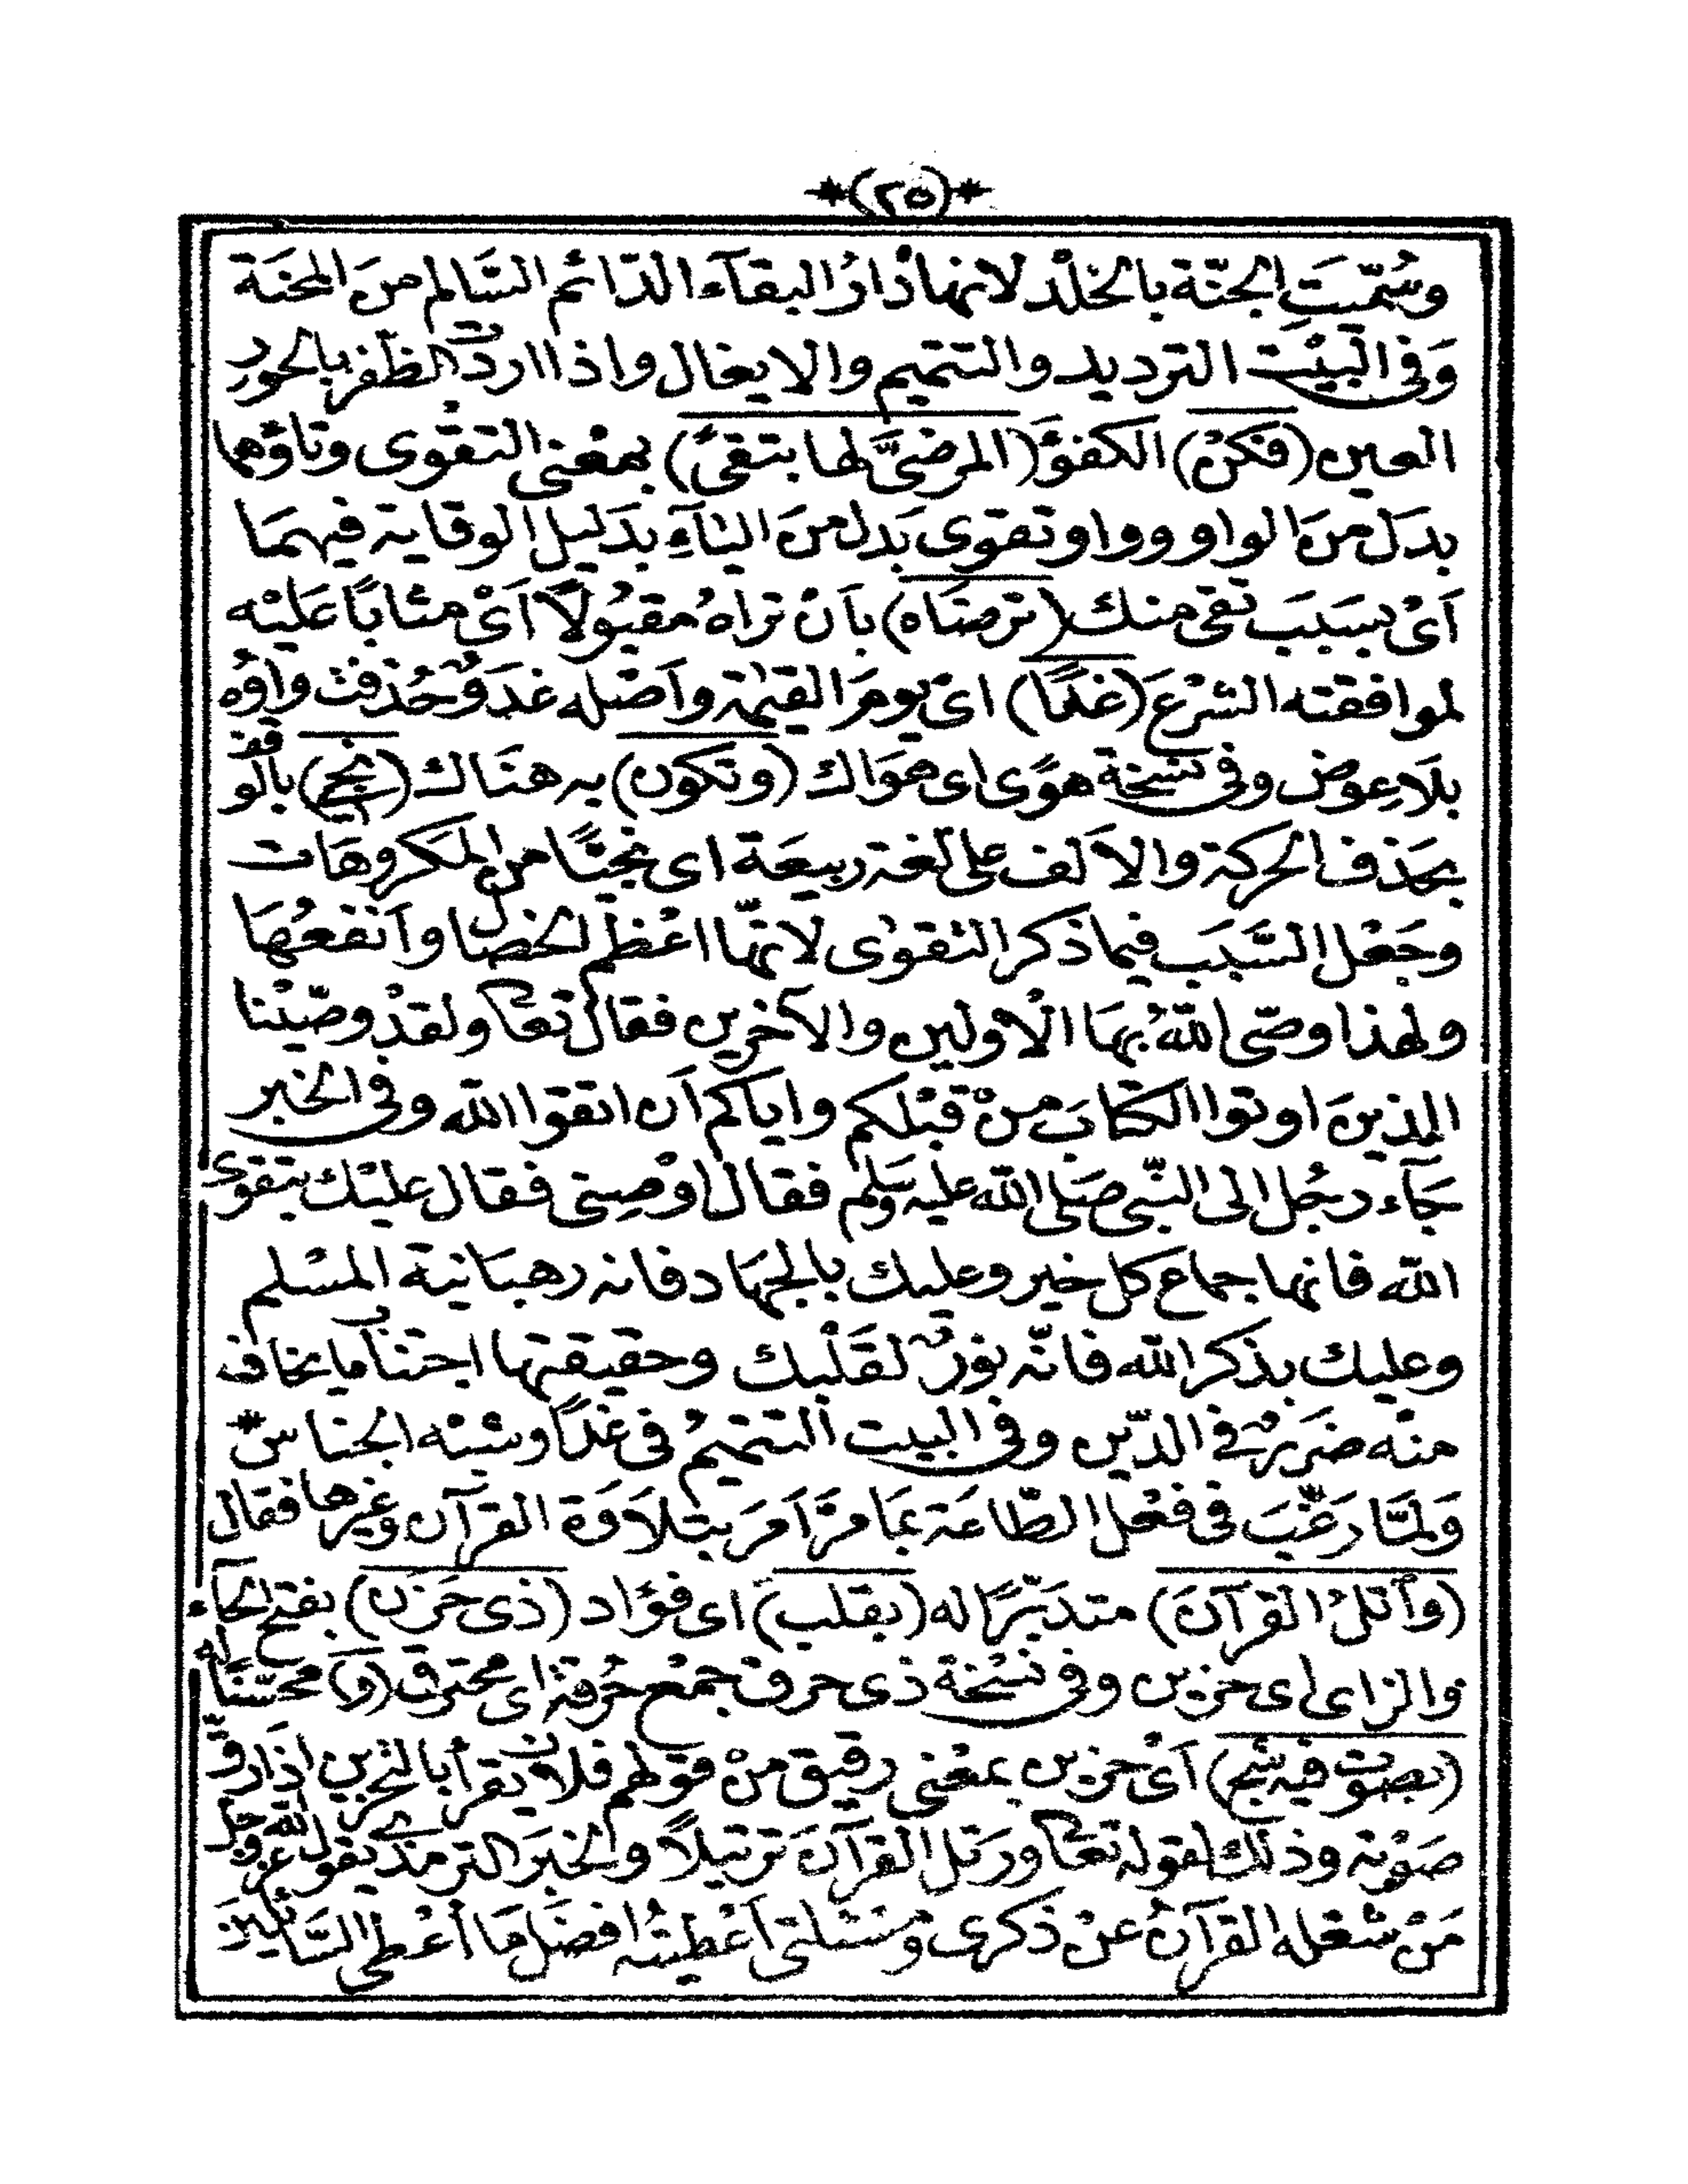 *(٢٥)*
وسُمّيتِ الجنّة بالخلْد لانها دَارُ البقآء الدّائم السَّالم منَ المحنَة
وَفى البيْت الترديد والتتميم والايغال واذا اردتَ الظّفر بالحور
العين (فكنْ) الكفؤَ (المرضىَّ لها بتقىً) بمعْنى التقوى وتاؤها
بدَل منَ الواو وواو تقوى بَدل منَ اليآءِ بدَليل الوقاية فيهمَا
اَىْ بسَبَب تقى منك (ترضَاه) باَنْ تراهُ مقبُولاً اَىْ مثابًا عَليْه
لموافقته الشرْعَ (غدًا) اىْ يومَ القيٰمة واَصْله غدَوٌ حُذفت واوُه
بلَاعِوض وفى نسْخة هوًى اى هوَاك (وتكون) به هنَاك (نجى) بالوقف
بحَذف الحركة والاَلف على لغة ربيعَة اى نجيًّا من المكروهَات
وجَعْل السَّبَب فيما ذكر التقوٰى لانّها اعْظم الخصَال واَنفعُهَا
ولهذا وصّى اللّهُ بهَا الاْولين والآخرين فقال تعَا ولقدْ وصّيْنا
الذينَ اوتوا الكتابَ منْ قبْلكم واياكم اَن اتقوا الله وفى الخبر
جَآء رجُل الى النّبى صَلى الله عليه وسَلم فقال اوْصِنى فقال عليْك بتقوى
الله فانها جماع كل خير وعليك بالجهَاد فانه رهبَانية المسْلم
وعليك بذكر الله فانّه نورٌ لقَلْبك وحقيقتها اجتناب ما يخاف
منْه ضَررٌ فى الدّين وفى البيت التتميمُ فى غدًا وشبْه الجناس *
وَلمَّا رَغّبَ فى فعْل الطّاعَة بمَا مرَّ اَمرَ بتلَاوَة القرآن وغيرها فقال
(وٱتلُ القرآنَ) متدَبّرًا له (بقلب) اى فؤاد (ذى حَزَن) بفتح الحَآء
والزاى اى حزين وفى نسْخة ذى حرف جمْع حُرقة اى محترق (وَ) محَسّنًا له
(بصوْت فيه شجى) اَىْ حزين بمعْنى رقيق منْ قولهم فلان يقرأ بالتحزين اذا رقّقَ
صَوْته وذلك لقوله تعَا ورتل القرآنَ ترتيلاً والخبَر الترمذى يقول الله عز وجل
مَنْ شغله القرآنُ عنْ ذكرى ومَسْئلتى اَعْطيتُه افضَل مَا أعْطى السَّائلينَ